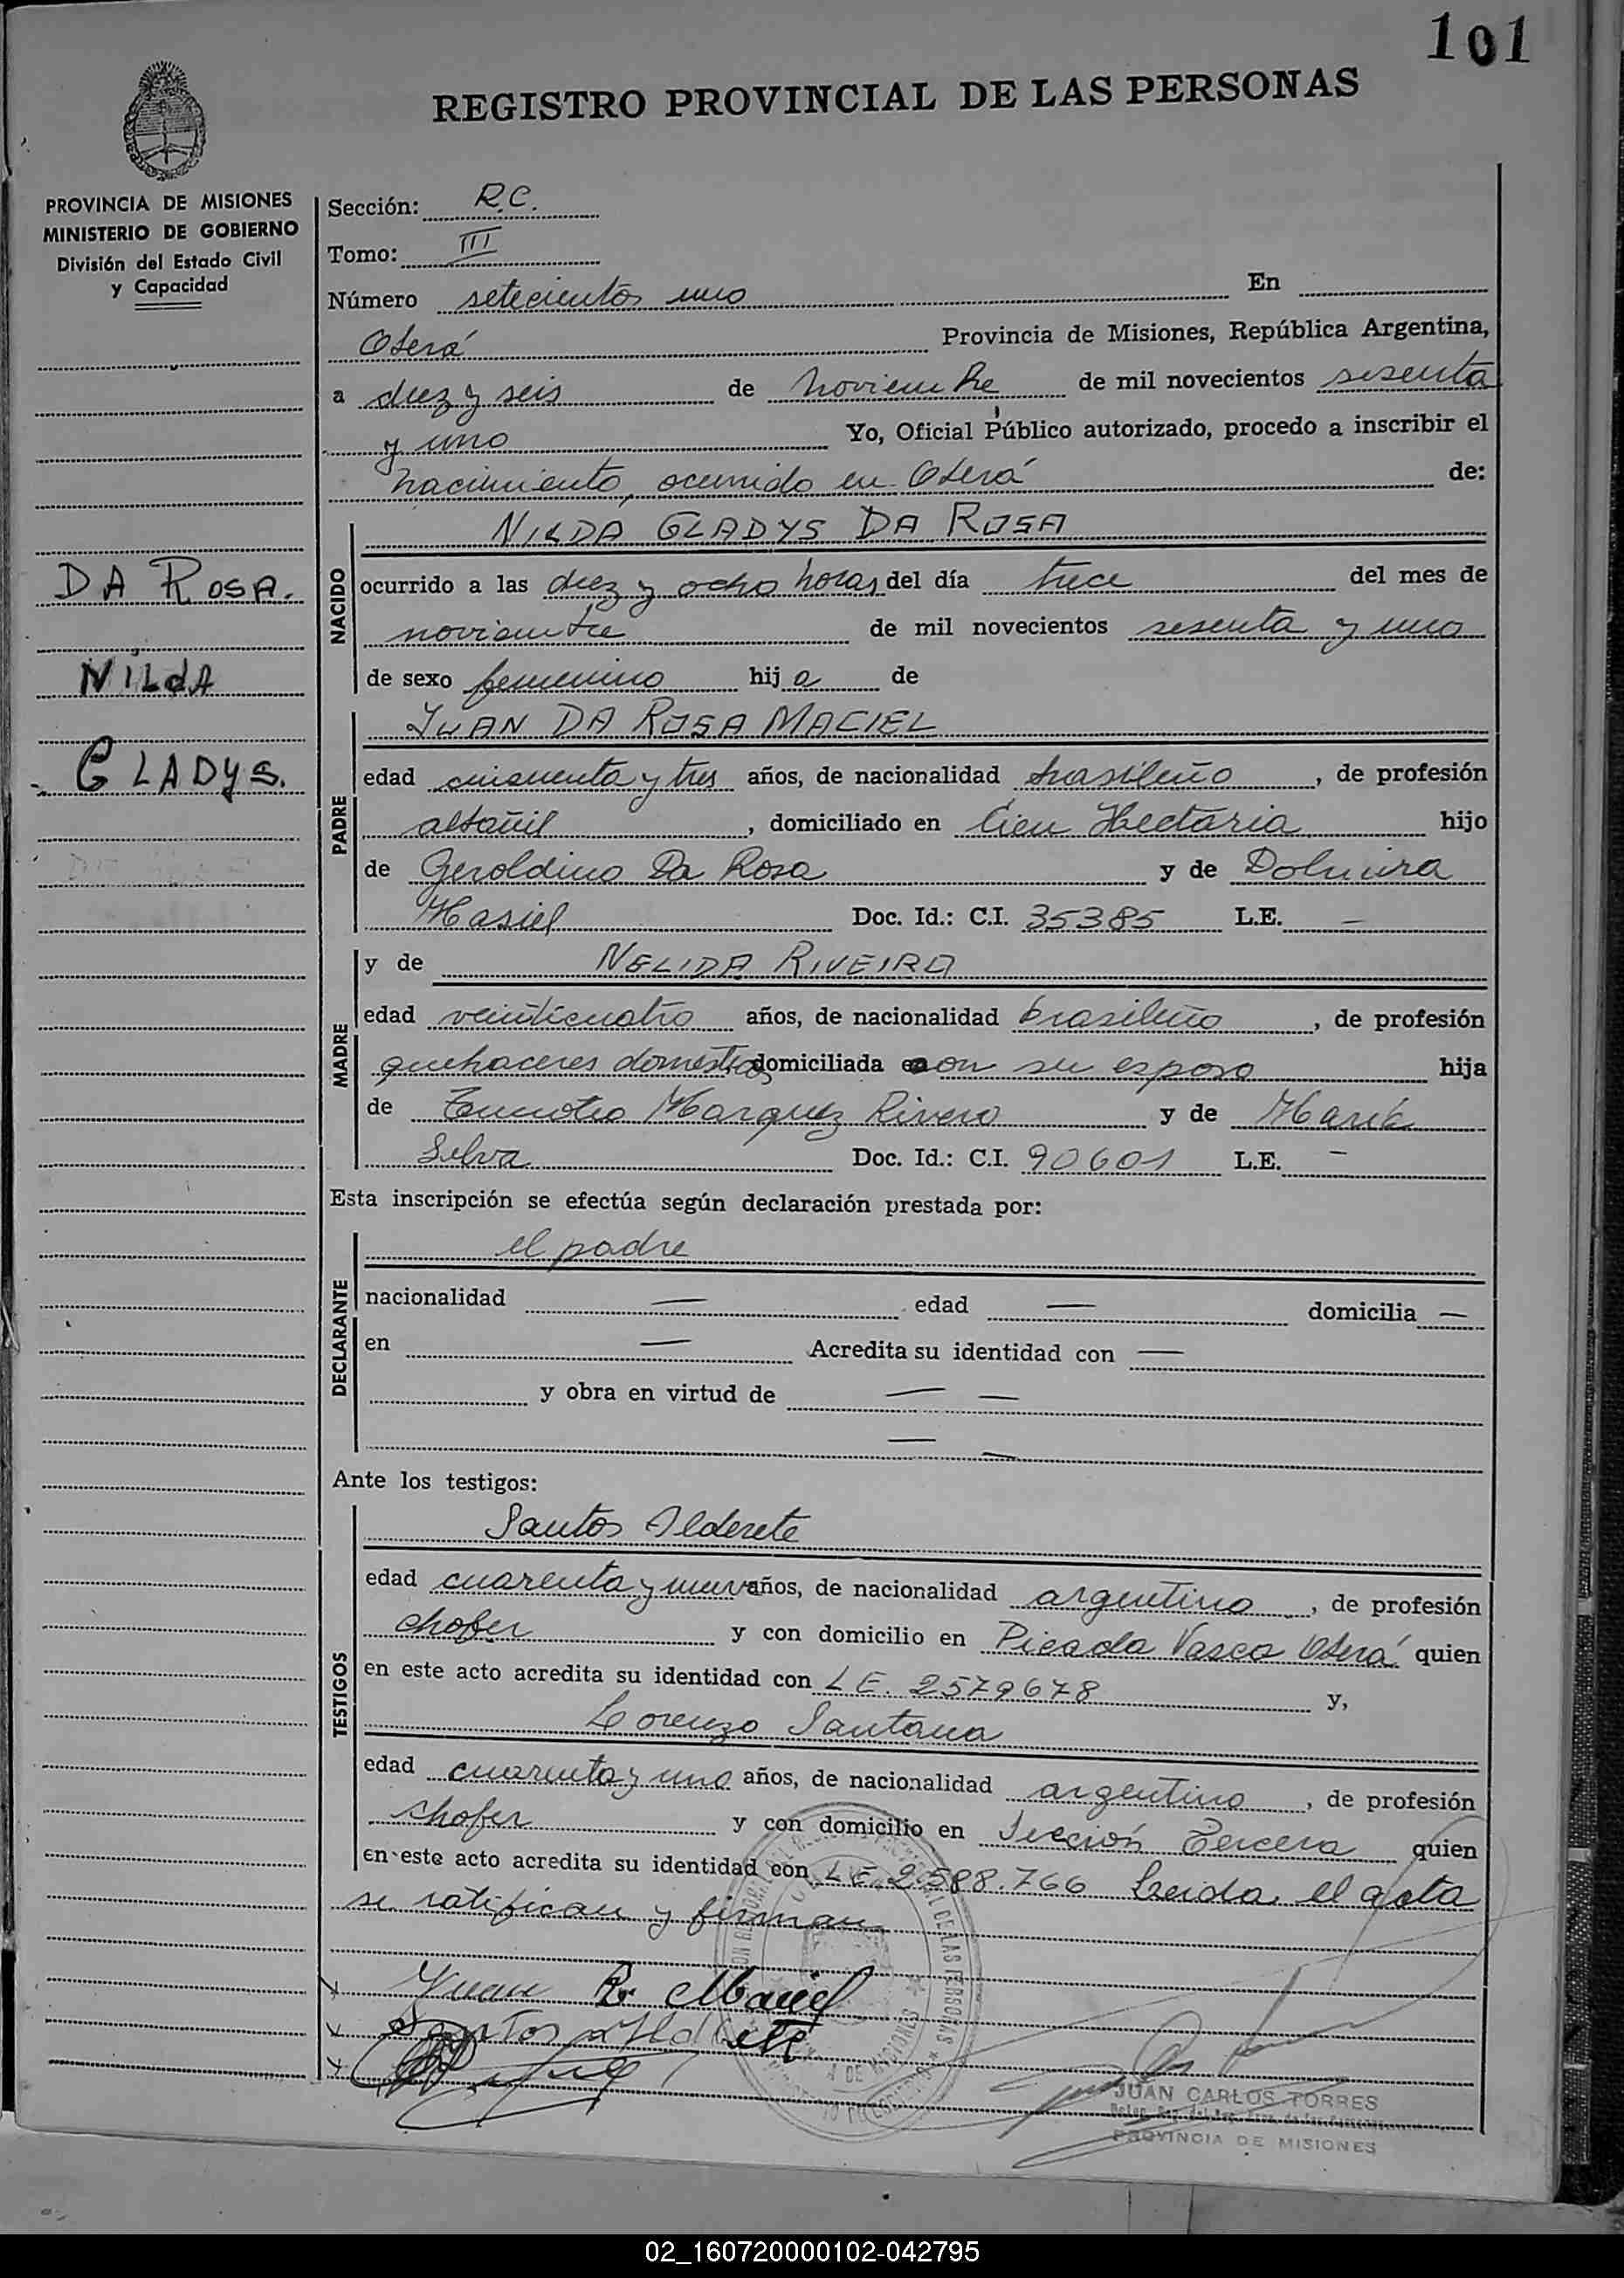 101
REGISTRO PROVINCIAL DE LAS PERSONAS
PROVINCIA DE MISIONES
MINISTERIO DE GOBIERNO
División del Estado Civil
y Capacidad
DA ROSA.
NILdA
GLADYS.
Sección: R.C.
Tomo: III
Número setecientos uno En
Oberá Provincia de Misiones, República Argentina,
a diez y seis de noviembre de mil novecientos sesenta
y uno Yo, Oficial Público autorizado, procedo a inscribir el
nacimiento, ocurrido en Oberá de:
NACIDO
NILDA GLADYS DA ROSA
ocurrido a las diez y ocho horas del día trece del mes de
noviembre de mil novecientos sesenta y uno
de sexo femenino hija de
PADRE
JUAN DA ROSA MACIEL
edad cincuenta y tres años, de nacionalidad brasileño, de profesión
albañil, domiciliado en Cien Hectaria hijo
de Geroldino Da Rosa y de Dolmira
Masiel Doc. Id.: C.I. 35385 L.E. —
MADRE
y de NELIDA RIVEIRO
edad veinticuatro años, de nacionalidad brasileño, de profesión
quehaceres domesticos domiciliada con su esposo hija
de Marquez Rivero y de María
Selva Doc. Id.: C.I. 90601 L.E. —
Esta inscripción se efectúa según declaración prestada por:
DECLARANTE
el padre
nacionalidad — edad — domicilia —
en — Acredita su identidad con —
y obra en virtud de — —
— —
Ante los testigos:
TESTIGOS
Santos Alderete
edad cuarenta y nueve años, de nacionalidad argentino, de profesión
chofer y con domicilio en Picada Vasca Oberá quien
en este acto acredita su identidad con L E. 2579678 y,
Lorenzo Santana
edad cuarenta y uno años, de nacionalidad argentino, de profesión
chofer y con domicilio en Sección Tercera quien
en este acto acredita su identidad con L E. 2.588.766 Leida el acta
se ratifican y firman
Juan R. Maciel
Santos Alderete
JUAN CARLOS TORRES
PROVINCIA DE MISIONES
02_160720000102-042795